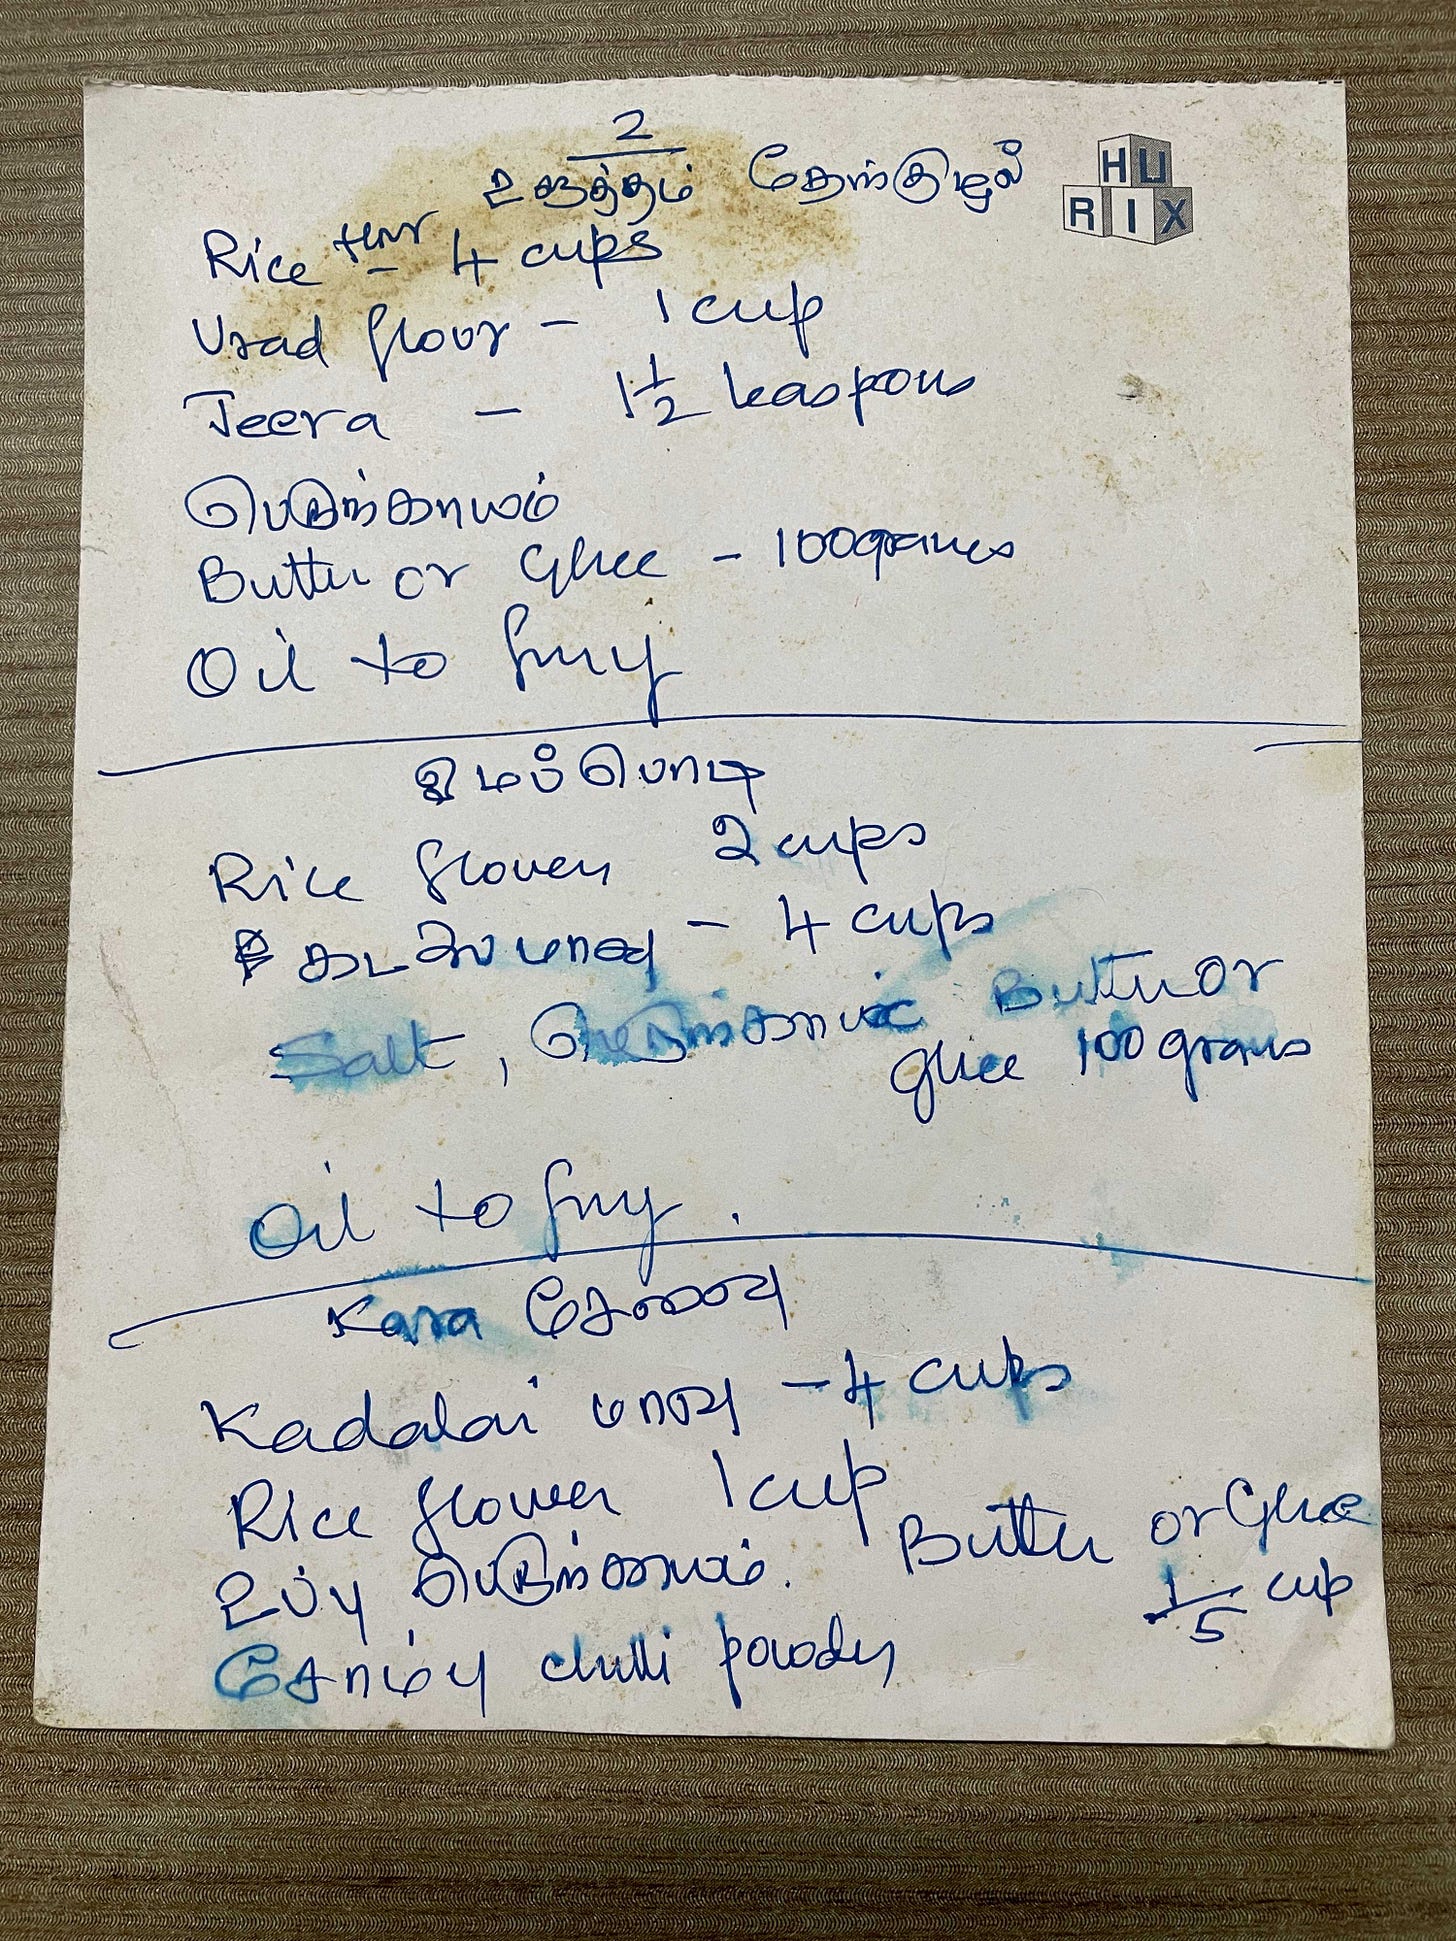 2
உளுத்தம் தேன்குழல்
HU
RIX
Rice flour - 4 cups
Urad flour - 1 cup
Jeera - 1 1/2 teaspons
பெருங்காயம்
Butter or Ghee - 100grames
Oil to fry
ஓமப்பொடி
Rice flower 2 cups
கடலைமாவு - 4 cups
Salt, பெருங்காயம் Butter or
ghee 100 grams
Oil to fry.
Kara சேவை
Kadalai மாவு - 4 cups
Rice flower 1 cup
Butter or Ghee
1/5 cup
உப்பு பெருங்காயம்.
சோம்பு chilli powder